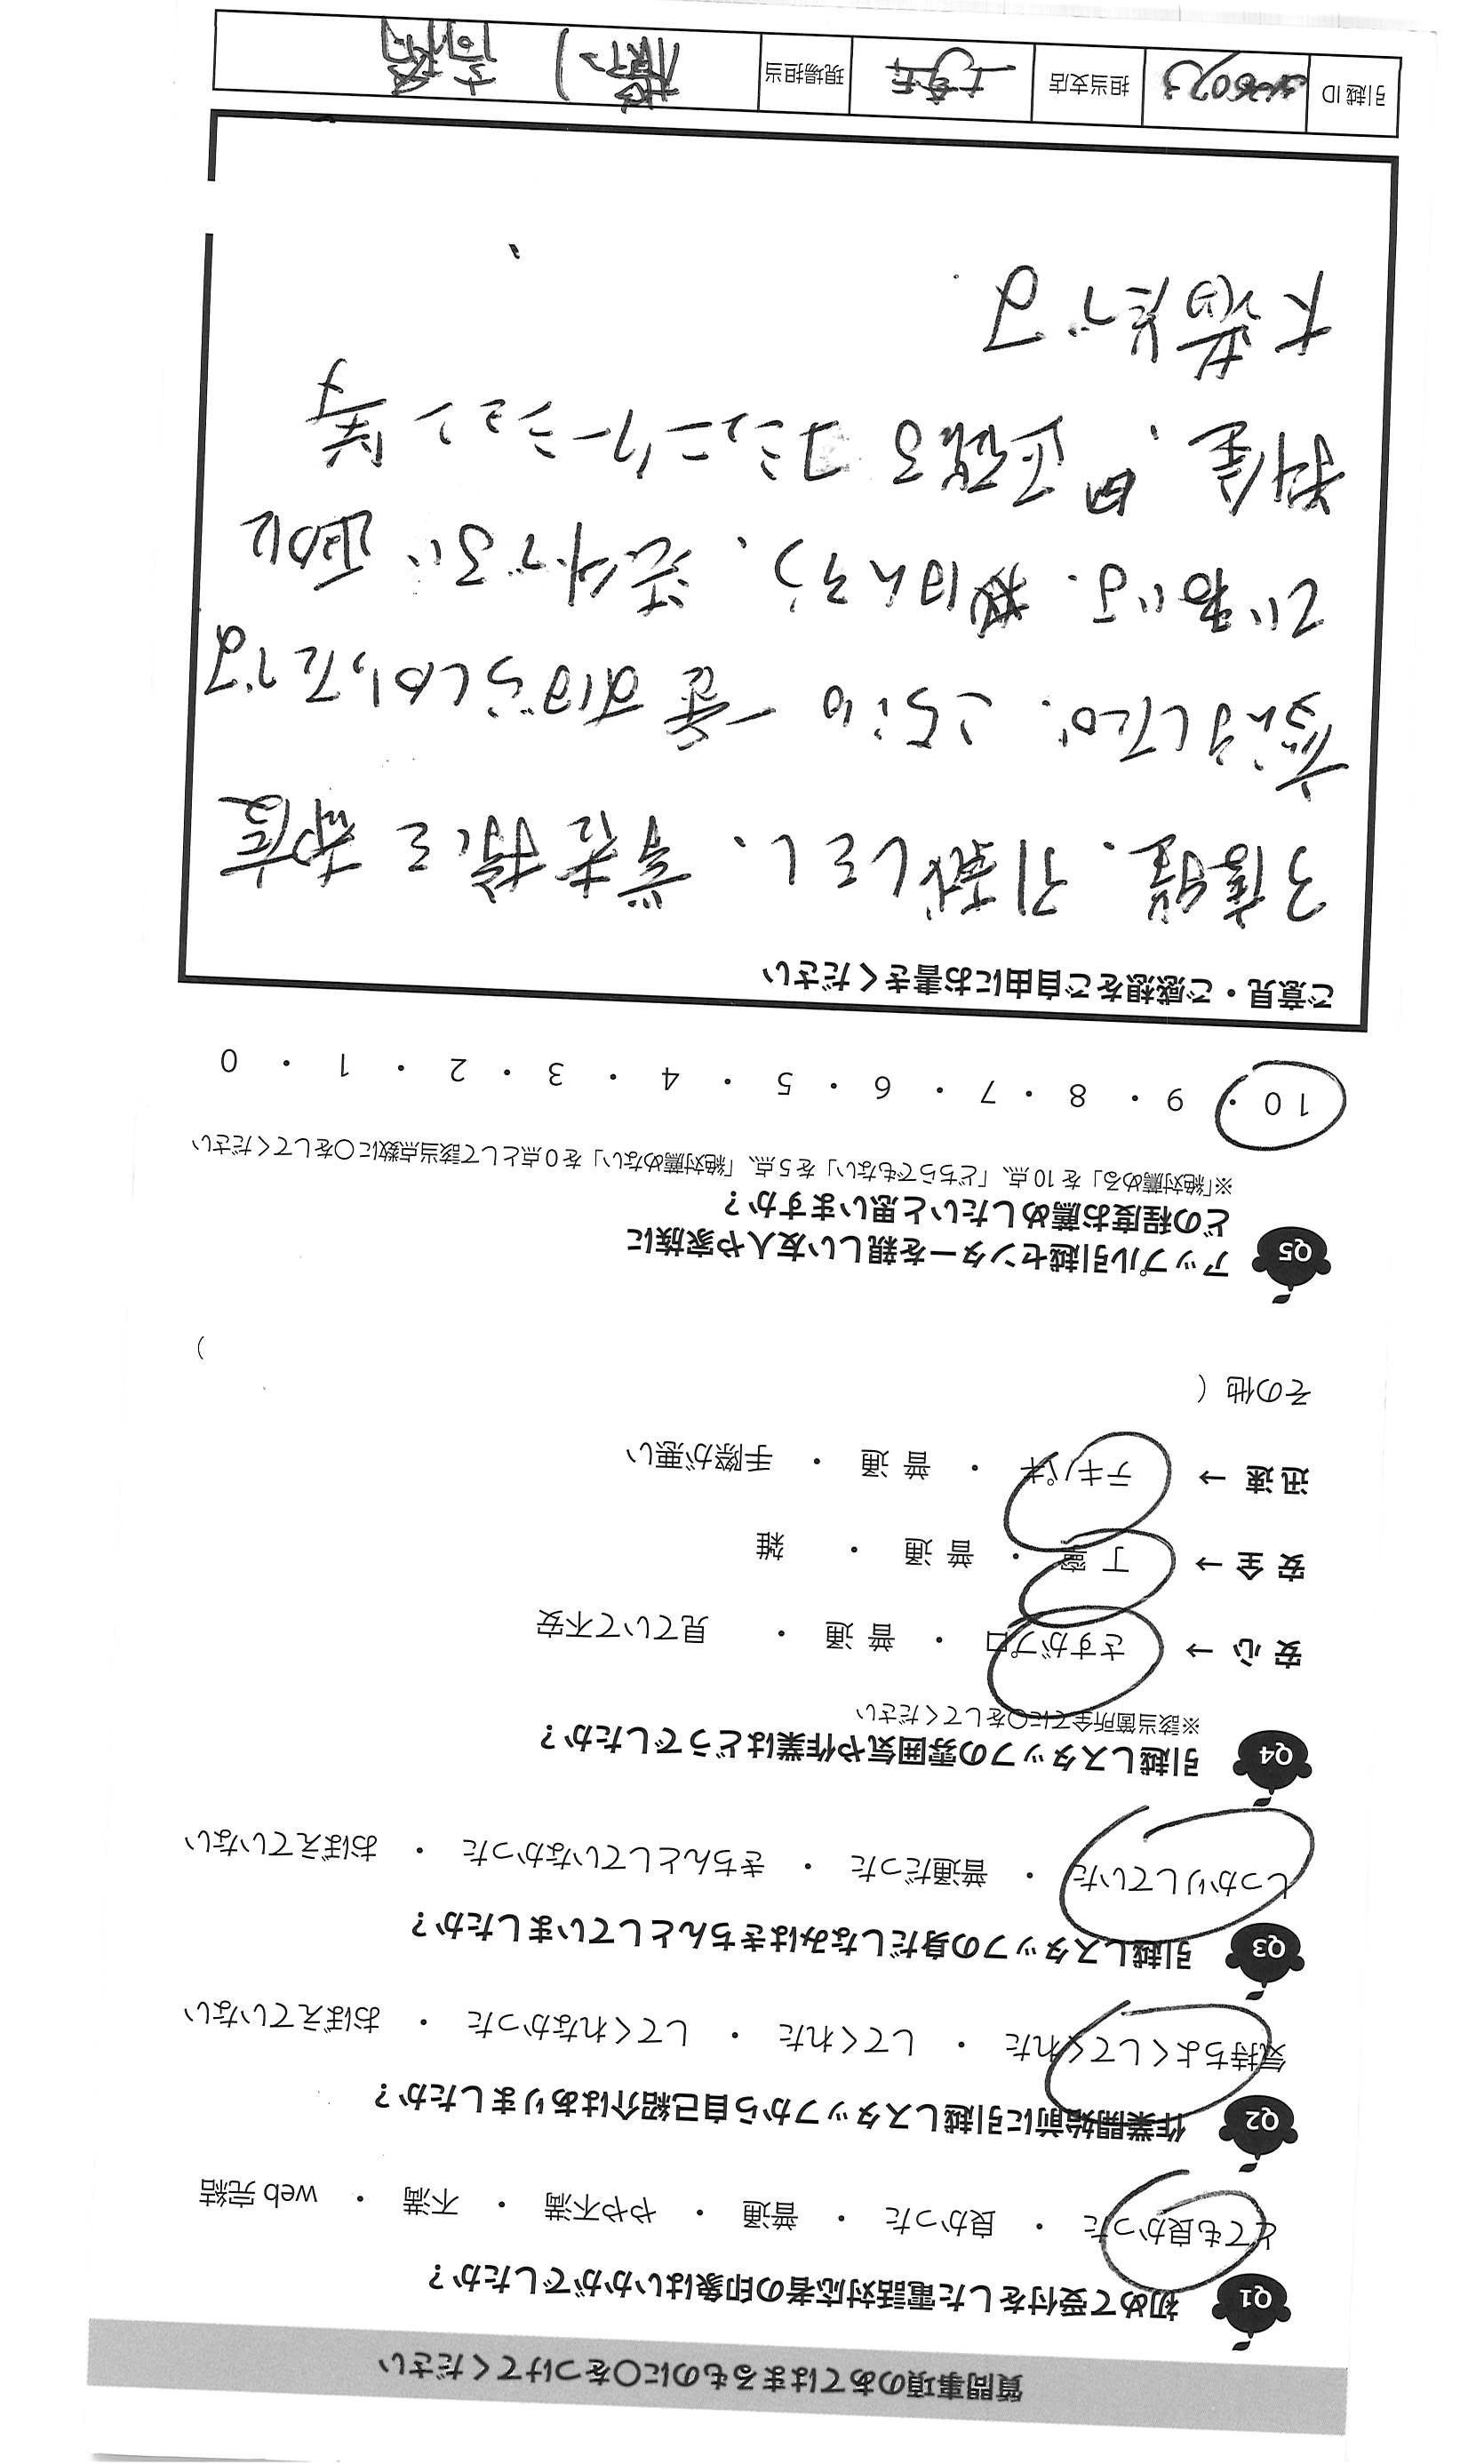 質問事項のあてはまるものに○をつけてください
Q1 初めて受付をした電話対応者の印象はいかがでしたか？
とても良かった ・ 良かった ・ 普通 ・ やや不満 ・ 不満 ・ web完結
Q2 作業開始前に引越しスタッフから自己紹介はありましたか？
気持ちよくしてくれた ・ してくれた ・ してくれなかった ・ おぼえていない
Q3 引越しスタッフの身だしなみはきちんとしていましたか？
しっかりしていた ・ 普通だった ・ きちんとしていなかった ・ おぼえていない
Q4 引越しスタッフの雰囲気や作業はどうでしたか？
※該当箇所全てに○をしてください
安心 → さすがプロ ・ 普通 ・ 見ていて不安
安全 → 丁寧 ・ 普通 ・ 雑
迅速 → テキパキ ・ 普通 ・ 手際が悪い
その他（ ）
Q5 アップル引越センターを親しい友人や家族に
どの程度お薦めしたいと思いますか？
※「絶対薦める」を10点、「どちらでもない」を5点、「絶対薦めない」を0点として該当点数に○をしてください
10 ・ 9 ・ 8 ・ 7 ・ 6 ・ 5 ・ 4 ・ 3 ・ 2 ・ 1 ・ 0
ご意見・ご感想をご自由にお書きください
3度程、引越しをし、業者様にも都度
ましたが、こちらも一番すばらしかったです
い。 、法外でない適切な
料金、 正確なコミュニケーション等
大満足です
引越ID 担当支店 現場担当 高橋